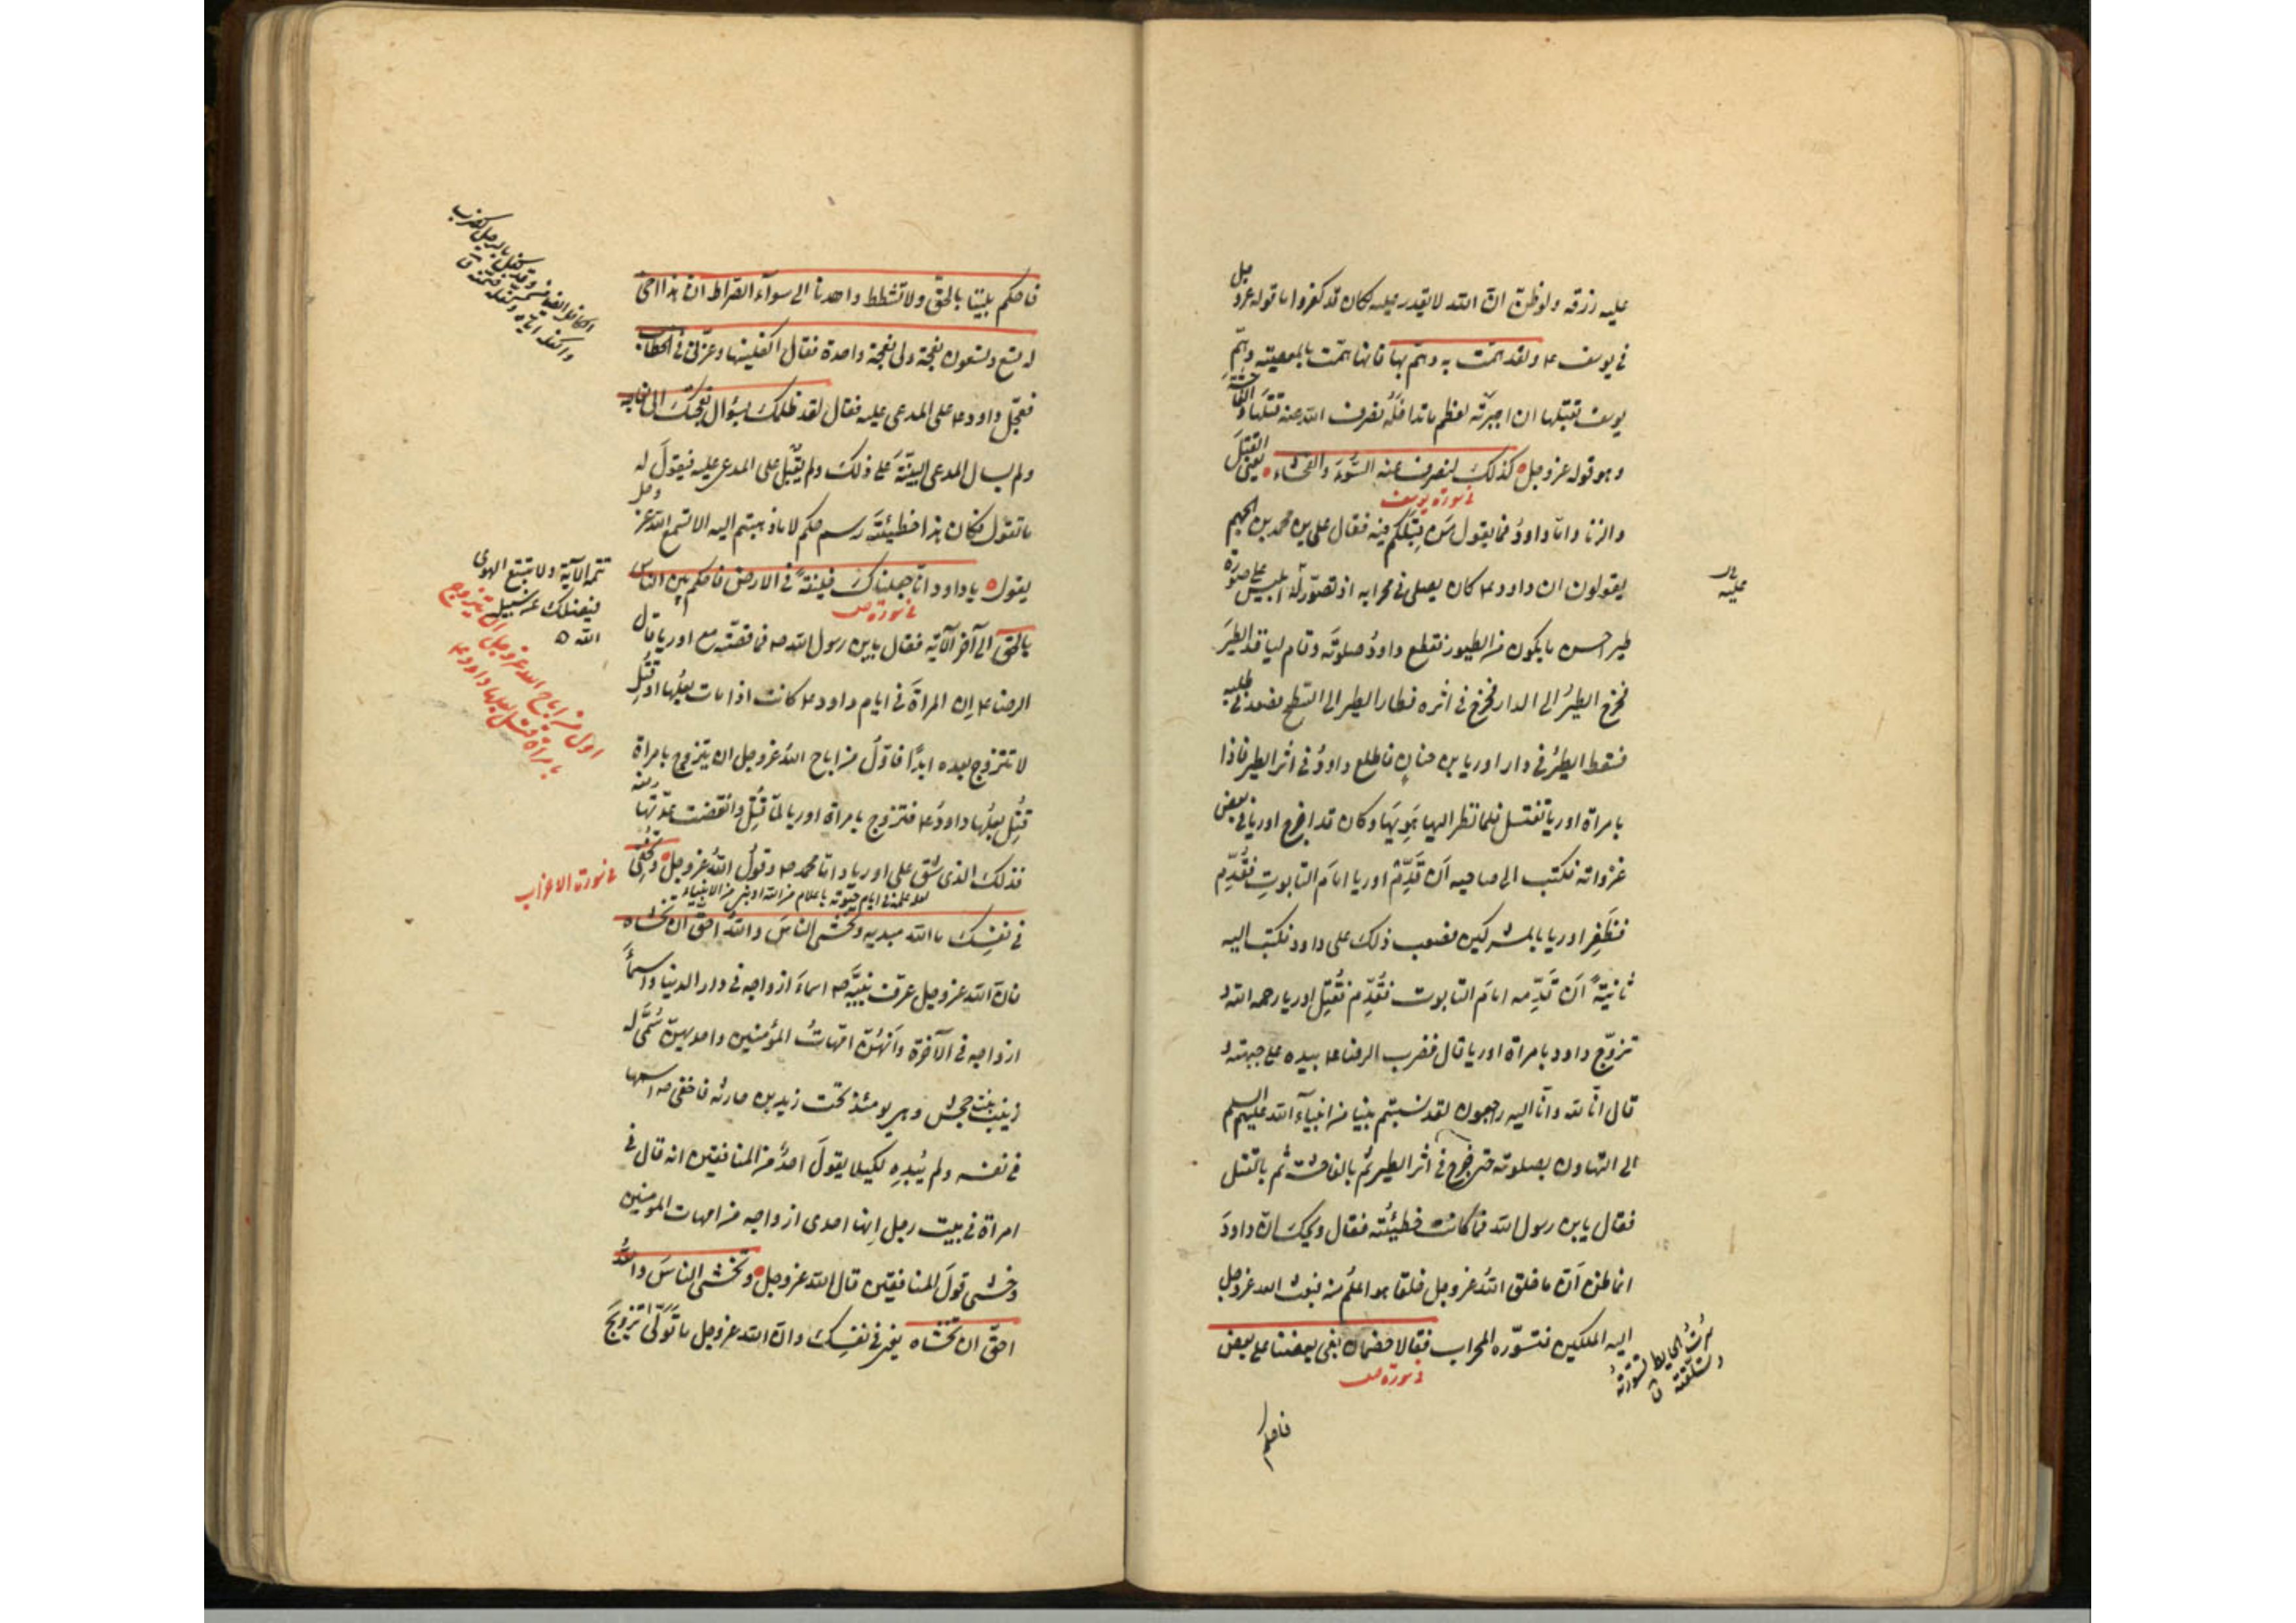 عليه رزقه ولو ظن ان الله لا يقدر عليه لكان قد كفر واما قوله عز وجل
في يوسف ع ولقد همّت به وهمّ بها فانها همّت بالمعصية وهمّ
يوسف بقتلها ان اجبرته لعظم ما تداخله فصرف الله عنه قتلها والفاحشة
وهو قوله عز وجل كذلك لنصرف عنه السوء والفحشاء يعني القتل
في سورة يوسف
والزنا واما داود فما يقول من قبلكم فيه فقال علي بن محمد بن الجهم
يقولون ان داود ع كان يصلي في محرابه اذ تصوّر له ابليس على صورة
طير احسن ما يكون من الطيور فقطع داود صلوته وقام لياخذ الطير
فخرج الطير الى الدار فخرج في اثره فطار الطير الى السطح فصعد في طلبه
فسقط الطير في دار اوريا بن حنان فاطلع داود في اثر الطير فاذا
بامراة اوريا تغتسل فلما نظر اليها هويها وكان قد اخرج اوريا في بعض
غزواته فكتب الى صاحبه ان قدّم اوريا امام التابوت فقدّم
فظفر اوريا بالمشركين فصعب ذلك على داود فكتب اليه
ثانية ان قدّمه امام التابوت فقدّم فقتل اوريا رحمه الله و
تزوّج داود بامراة اوريا قال فضرب الرضا ع بيده على جبهته و
قال انا لله وانا اليه راجعون لقد نسبتم نبيا من انبياء الله عليهم السلم
الى التهاون بصلوته حتى خرج في اثر الطير ثم بالفاحشة ثم بالقتل
فقال يا بن رسول الله فما كانت خطيئته فقال ويحك ان داود
انما ظن ان ما خلق الله عز وجل خلقا هو اعلم منه فبعث الله عز وجل
اليه الملكين فتسوّرا المحراب فقالا خصمان بغى بعضنا على بعض
في سورة ص
فاحكم
فاحكم بيننا بالحق ولا تشطط واهدنا الى سواء الصراط ان هذا اخي
له تسع وتسعون نعجة ولي نعجة واحدة فقال اكفلنيها وعزّني في الخطاب
فعجّل داود ع على المدعى عليه فقال لقد ظلمك بسؤال نعجتك الى نعاجه
ولم يسال المدعي البينة على ذلك ولم يقبل على المدعى عليه فيقول له
ما تقول فكان هذا خطيئة رسم حكم لا ما ذهبتم اليه الا تسمع الله عز وجل
يقول يا داود انا جعلناك خليفة في الارض فاحكم بين الناس
في سورة ص
بالحق الى آخر الآية فقال يا بن رسول الله ص فما قصته مع اوريا قال
الرضا ع ان المراة في ايام داود ع كانت اذا مات بعلها او قتل
لا تتزوج بعده ابدا فاول من اباح الله عز وجل ان يتزوج بامراة
قتل بعلها داود ع فتزوج بامراة اوريا لما قتل وانقضت عدتها منه
فذلك الذي شق على اوريا واما محمد ص وقول الله عز وجل وتخفي
في سورة الاحزاب
في نفسك ما الله مبديه وتخشى الناس والله احق ان تخشاه
فان الله عز وجل عرف نبيه ص اسماء ازواجه في دار الدنيا واسماء
ازواجه في الآخرة وانهن امهات المؤمنين واحديهن سمى له
زينب بنت جحش وهي يومئذ تحت زيد بن حارثه فاخفى ص اسمها
في نفسه ولم يبده لكيلا يقول احد من المنافقين انه قال في
امراة في بيت رجل انها احدى ازواجه من امهات المؤمنين
وخشى قول المنافقين قال الله عز وجل وتخشى الناس والله
احق ان تخشاه يعني في نفسك وان الله عز وجل ما تولى تزويج
تتمه الآية ولا تتبع الهوى
فيضلك عن سبيل
الله
اول من اباح الله عز وجل ان يتزوج
بامراة قتل بعلها داود ع